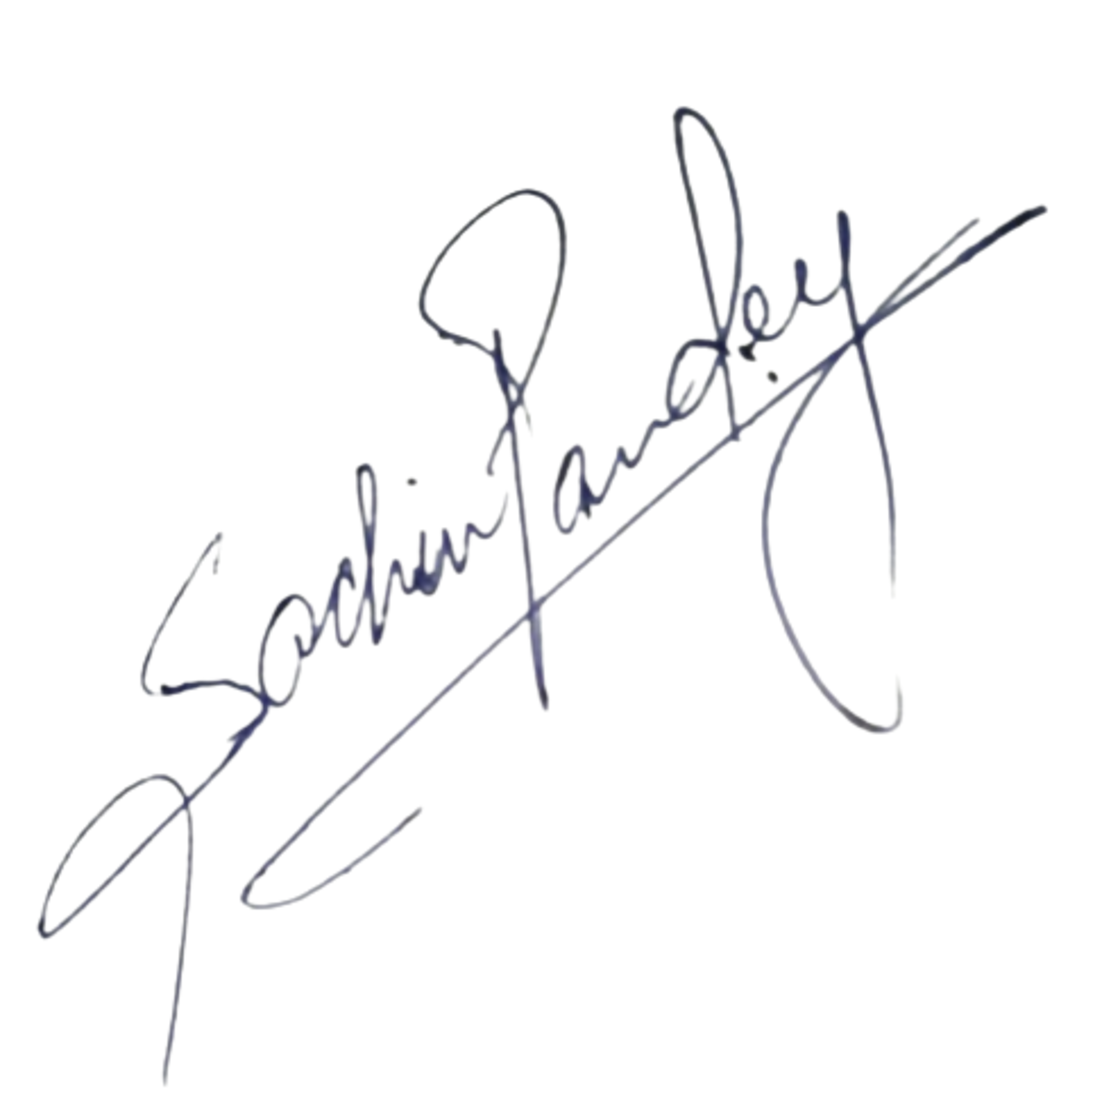 Sachin Pandey